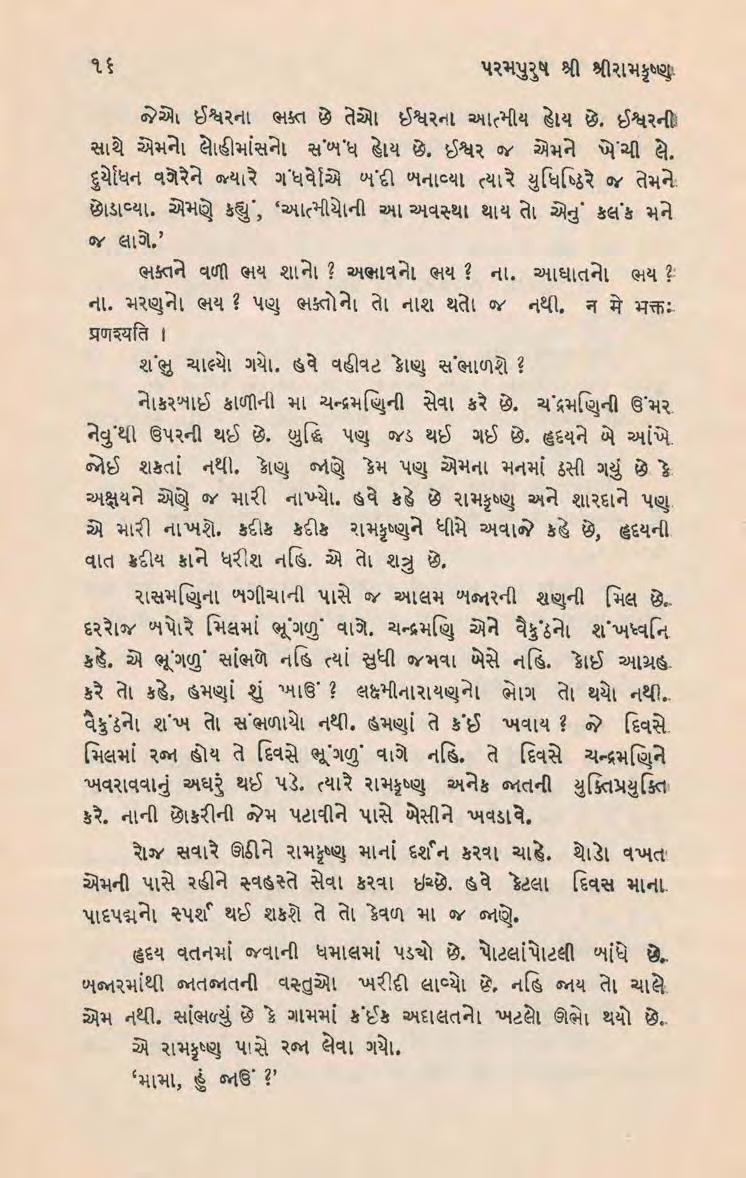 ૧૬ પરમપુરુષ શ્રી શ્રીરામકૃષ્ણ
જેઓ ઈશ્વરના ભક્ત છે તેઓ ઈશ્વરના આત્મીય હોય છે. ઈશ્વરની
સાથે એમનો લોહીમાંસનો સંબંધ હોય છે. ઈશ્વર જ એમને ખેંચી લે.
દુર્યોધન વગેરેને જ્યારે ગંધર્વોએ બંદી બનાવ્યા ત્યારે યુધિષ્ઠિરે જ તેમને
છોડાવ્યા. એમણે કહ્યું, ‘આત્મીયોની આ અવસ્થા થાય તો એનું કલંક મને
જ લાગે.’
ભક્તને વળી ભય શાનો ? અભાવનો ભય ? ના. આઘાતનો ભય ?
ના. મરણનો ભય ? પણ ભક્તોનો તો નાશ થતો જ નથી. न मे भक्तः
प्रणश्यति ।
શંભુ ચાલ્યો ગયો. હવે વહીવટ કોણ સંભાળશે ?
નોકરબાઈ કાળીની મા ચન્દ્રમણિની સેવા કરે છે. ચંદ્રમણિની ઉંમર
નેવુંથી ઉપરની થઈ છે. બુદ્ધિ પણ જડ થઈ ગઈ છે. હૃદયને બે આંખે
જોઈ શકતાં નથી. કોણ જાણે કેમ પણ એમના મનમાં ઠસી ગયું છે કે
અક્ષયને એણે જ મારી નાખ્યો. હવે કહે છે રામકૃષ્ણ અને શારદાને પણ
એ મારી નાખશે. કદીક કદીક રામકૃષ્ણને ધીમે અવાજે કહે છે, હૃદયની
વાત કદીય કાને ધરીશ નહિ. એ તો શત્રુ છે.
રાસમણિના બગીચાની પાસે જ આલમ બજારની શણની મિલ છે.
દરરોજ બપોરે મિલમાં ભૂંગળું વાગે. ચન્દ્રમણિ એને વૈકુંઠનો શંખધ્વનિ
કહે. એ ભૂંગળું સાંભળે નહિ ત્યાં સુધી જમવા બેસે નહિ. કોઈ આગ્રહ
કરે તો કહે, હમણાં શું ખાઉં ? લક્ષ્મીનારાયણનો ભોગ તો થયો નથી.
વૈકુંઠનો શંખ તો સંભળાયો નથી. હમણાં તે કંઈ ખવાય ? જે દિવસે
મિલમાં રજા હોય તે દિવસે ભૂંગળું વાગે નહિ. તે દિવસે ચન્દ્રમણિને
ખવરાવવાનું અઘરું થઈ પડે. ત્યારે રામકૃષ્ણ અનેક જાતની યુક્તિપ્રયુક્તિ
કરે. નાની છોકરીની જેમ પટાવીને પાસે બેસીને ખવડાવે.
રોજ સવારે ઊઠીને રામકૃષ્ણ માનાં દર્શન કરવા ચાહે. થોડો વખત
એમની પાસે રહીને સ્વહસ્તે સેવા કરવા ઇચ્છે. હવે કેટલા દિવસ માના
પાદપદ્મનો સ્પર્શ થઈ શકશે તે તો કેવળ મા જ જાણે.
હૃદય વતનમાં જવાની ધમાલમાં પડ્યો છે. પોટલાંપોટલી બાંધે છે.
બજારમાંથી જાતજાતની વસ્તુઓ ખરીદી લાવ્યો છે. નહિ જાય તો ચાલે
એમ નથી. સાંભળ્યું છે કે ગામમાં કંઈક અદાલતનો ખટલો ઊભો થયો છે.
એ રામકૃષ્ણ પાસે રજા લેવા ગયો.
‘મામા, હું જાઉં ?’